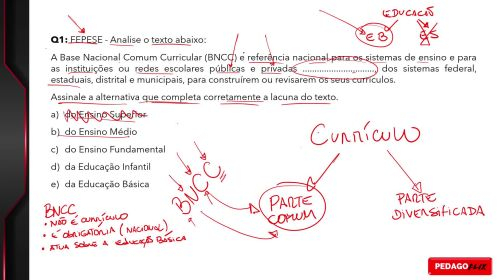 EDUCAÇÃO
EB
ES
Q1: FEPESE - Analise o texto abaixo:
A Base Nacional Comum Curricular (BNCC) é referência nacional para os sistemas de ensino e para
as instituições ou redes escolares públicas e privadas .............................. dos sistemas federal,
estaduais, distrital e municipais, para construírem ou revisarem os seus currículos.
Assinale a alternativa que completa corretamente a lacuna do texto.
a) do Ensino Superior
b) do Ensino Médio
c) do Ensino Fundamental
d) da Educação Infantil
e) da Educação Básica
CURRÍCULO
BNCC
PARTE
COMUM
PARTE
DIVERSIFICADA
BNCC
• NÃO É CURRÍCULO
• É OBRIGATÓRIA (NACIONAL)
• ATUA SOBRE A EDUCAÇÃO BÁSICA